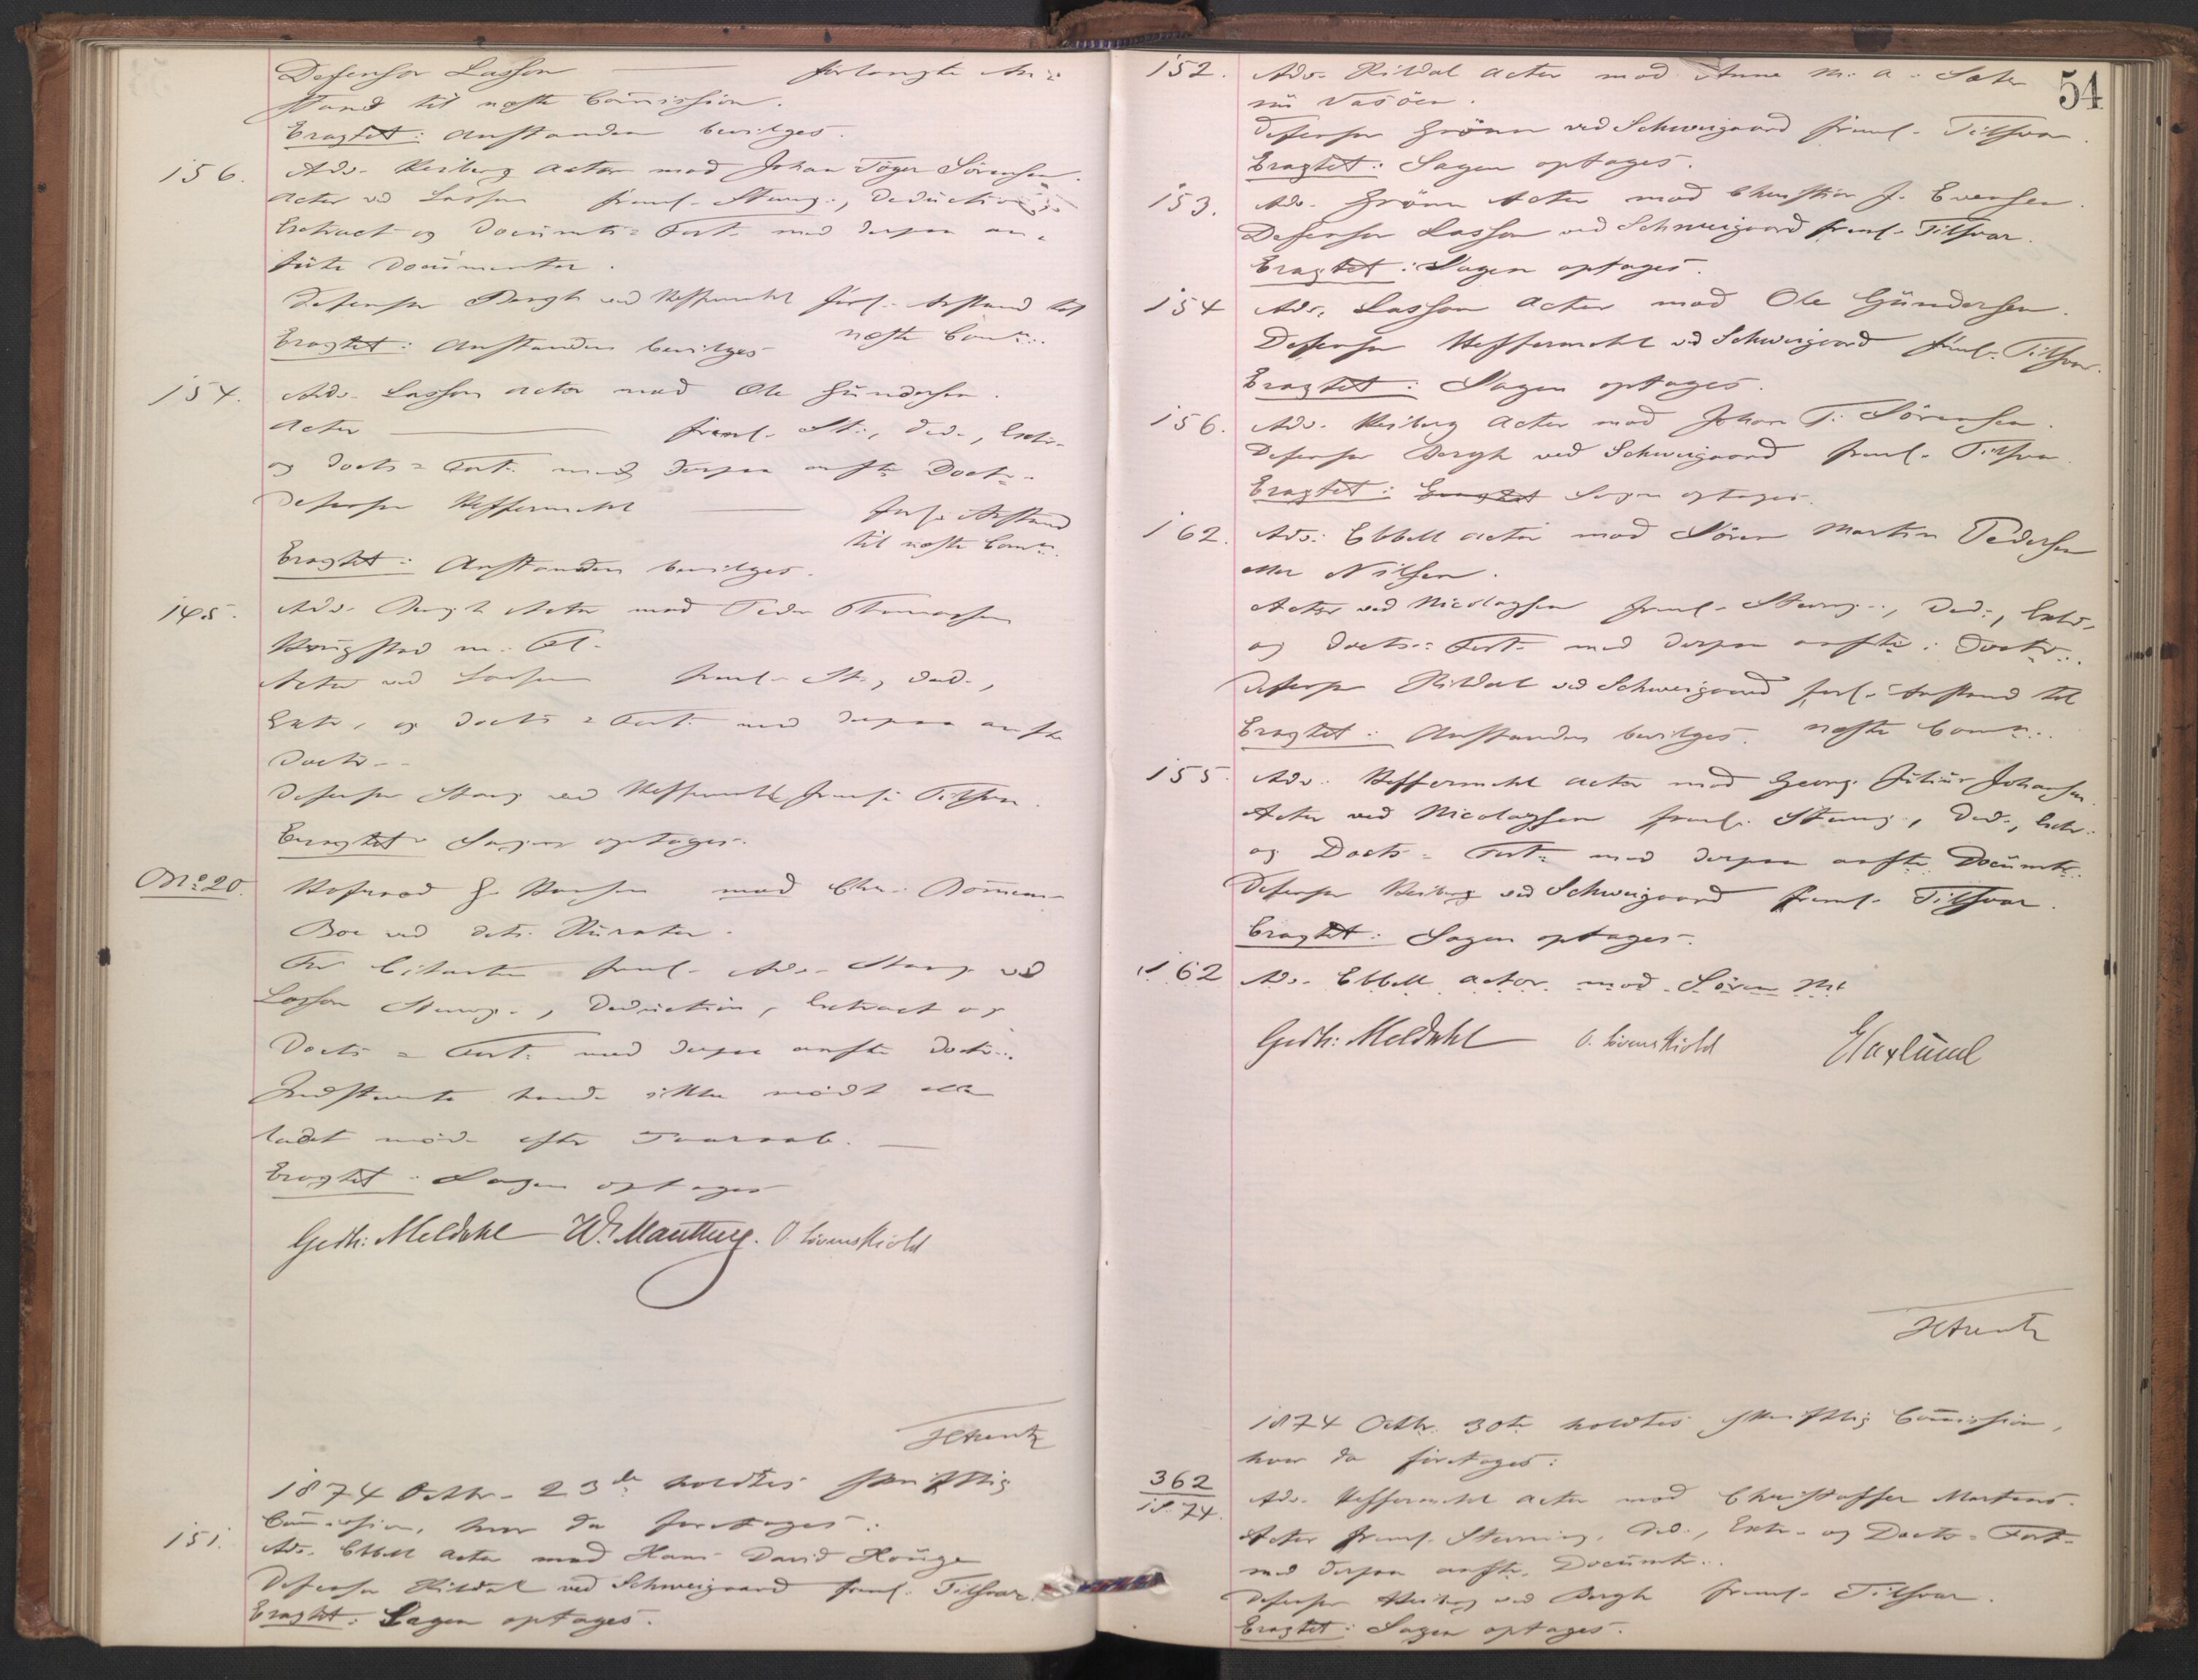 Defensor Lasson ——— forlangte An=
stand til næste Commission.
Eragtet: Anstanden bevilges.
156. Adv. Heiberg Actor mod Johan Töger Sörensen.
Actor ved Lasson freml. Stevng., Deductions
Extract og Documts= Fort. med derpaa an=
førte Documenter.
Defensor Bergh ved Heffermehl forl. Anstand til
næste Comn..
Eragtet: Anstanden bevilges
154. Adv. Lasson Actor mod Ole Gundersen.
Actor ——— freml. St., Ded., Extr.
og Docts= Fort. med derpaa anfte Doctr.
Defensor Heffermehl ——— forl. Anstand
til næste Comn.
Eragtet: Anstanden bevilges.
145. Adv. Bergh Actor mod Peder Thomassen
Haugstad m. Fl.
Actor ved Lasson freml. St., Ded.,
Extr. og Docts= Fort. med derpaa anfte
Doctr.
Defensor Stang ved Heffermehl freml. Tilsvar.
Eragtet: Sagen optages.
No 20. Hofraad H. Hansen mod Chr.
Boe ved dets Kurator.
For Citanten freml. Adv. Stang ved
Lasson Stevng., Deduction, Extract og
Docts= Fort. med derpaa anfte Doctr..
Indstevnte havde ikke mødt eller
ladet møde efter Paaraab. —
Eragtet: Sagen optages
Gedh: Meldahl W. Manthey. O. Løvenskiold
HArentz
1874 Octbr. 23de holdtes skriftlig
Commission, hvor da foretoges:
151. Adv. Ebbell Actor mod Hans David Houge
Defensor Hildal ved Schweigaard freml. Tilsvar.
Eragtet: Sagen optages.
54
152. Adv. Hildal Actor mod Anne M. A. Sæter
nu Vasöen.
Defensor Grönn ved Schweigaard freml. Tilsvar.
Eragtet: Sagen optages.
153. Adv. Grönn Actor mod Christian J. Evensen.
Defensor Lasson ved Schweigaard freml. Tilsvar.
Eragtet: Sagen optages.
154 Adv. Lasson Actor mod Ole Gundersen.
Defensor Heffermehl ved Schweigaard freml. Tilsvar.
Eragtet: Sagen optages.
156. Adv. Heiberg Actor mod Johan T. Sörensen.
Defensor Bergh ved Schweigaard freml. Tilsvar.
Eragtet: Eragtet Sagen optages.
162. Adv. Ebbell Actor mod Sören Martin Pedersen
eller Nilsen.
Actor ved Nicolaysen freml. Stevng., Ded., Extr.
og Docts= Fort. med derpaa anfte Doctr..
Defensor Hildal ved Schweigaard forl. Anstand til
næste Comn..
Eragtet: Anstanden bevilges.
155. Adv. Heffermehl Actor mod Georg Julius Johansen.
Actor ved Nicolaysen freml. Stevng., Ded., Extr.
og Docts= Fort. med derpaa anfte Documtr.
Defensor Heiberg ved Schweigaard freml. Tilsvar.
Eragtet: Sagen optages.
162 Adv. Ebbell Actor mod Sören Mt
Gedh: Meldahl O. Løvenskiold E Haxlund
HArentz
1874 Octbr. 30te holdtes skriftlig Commission,
hvor da foretoges:
362/1874. Adv. Heffermehl Actor mod Christoffer Martens.
Actor freml. Stevning, Ded., Extr. og Docts= Fort.
med derpaa anfte Documtr..
Defensor Heiberg ved Bergh freml. Tilsvar.
Eragtet: Sagen optages.